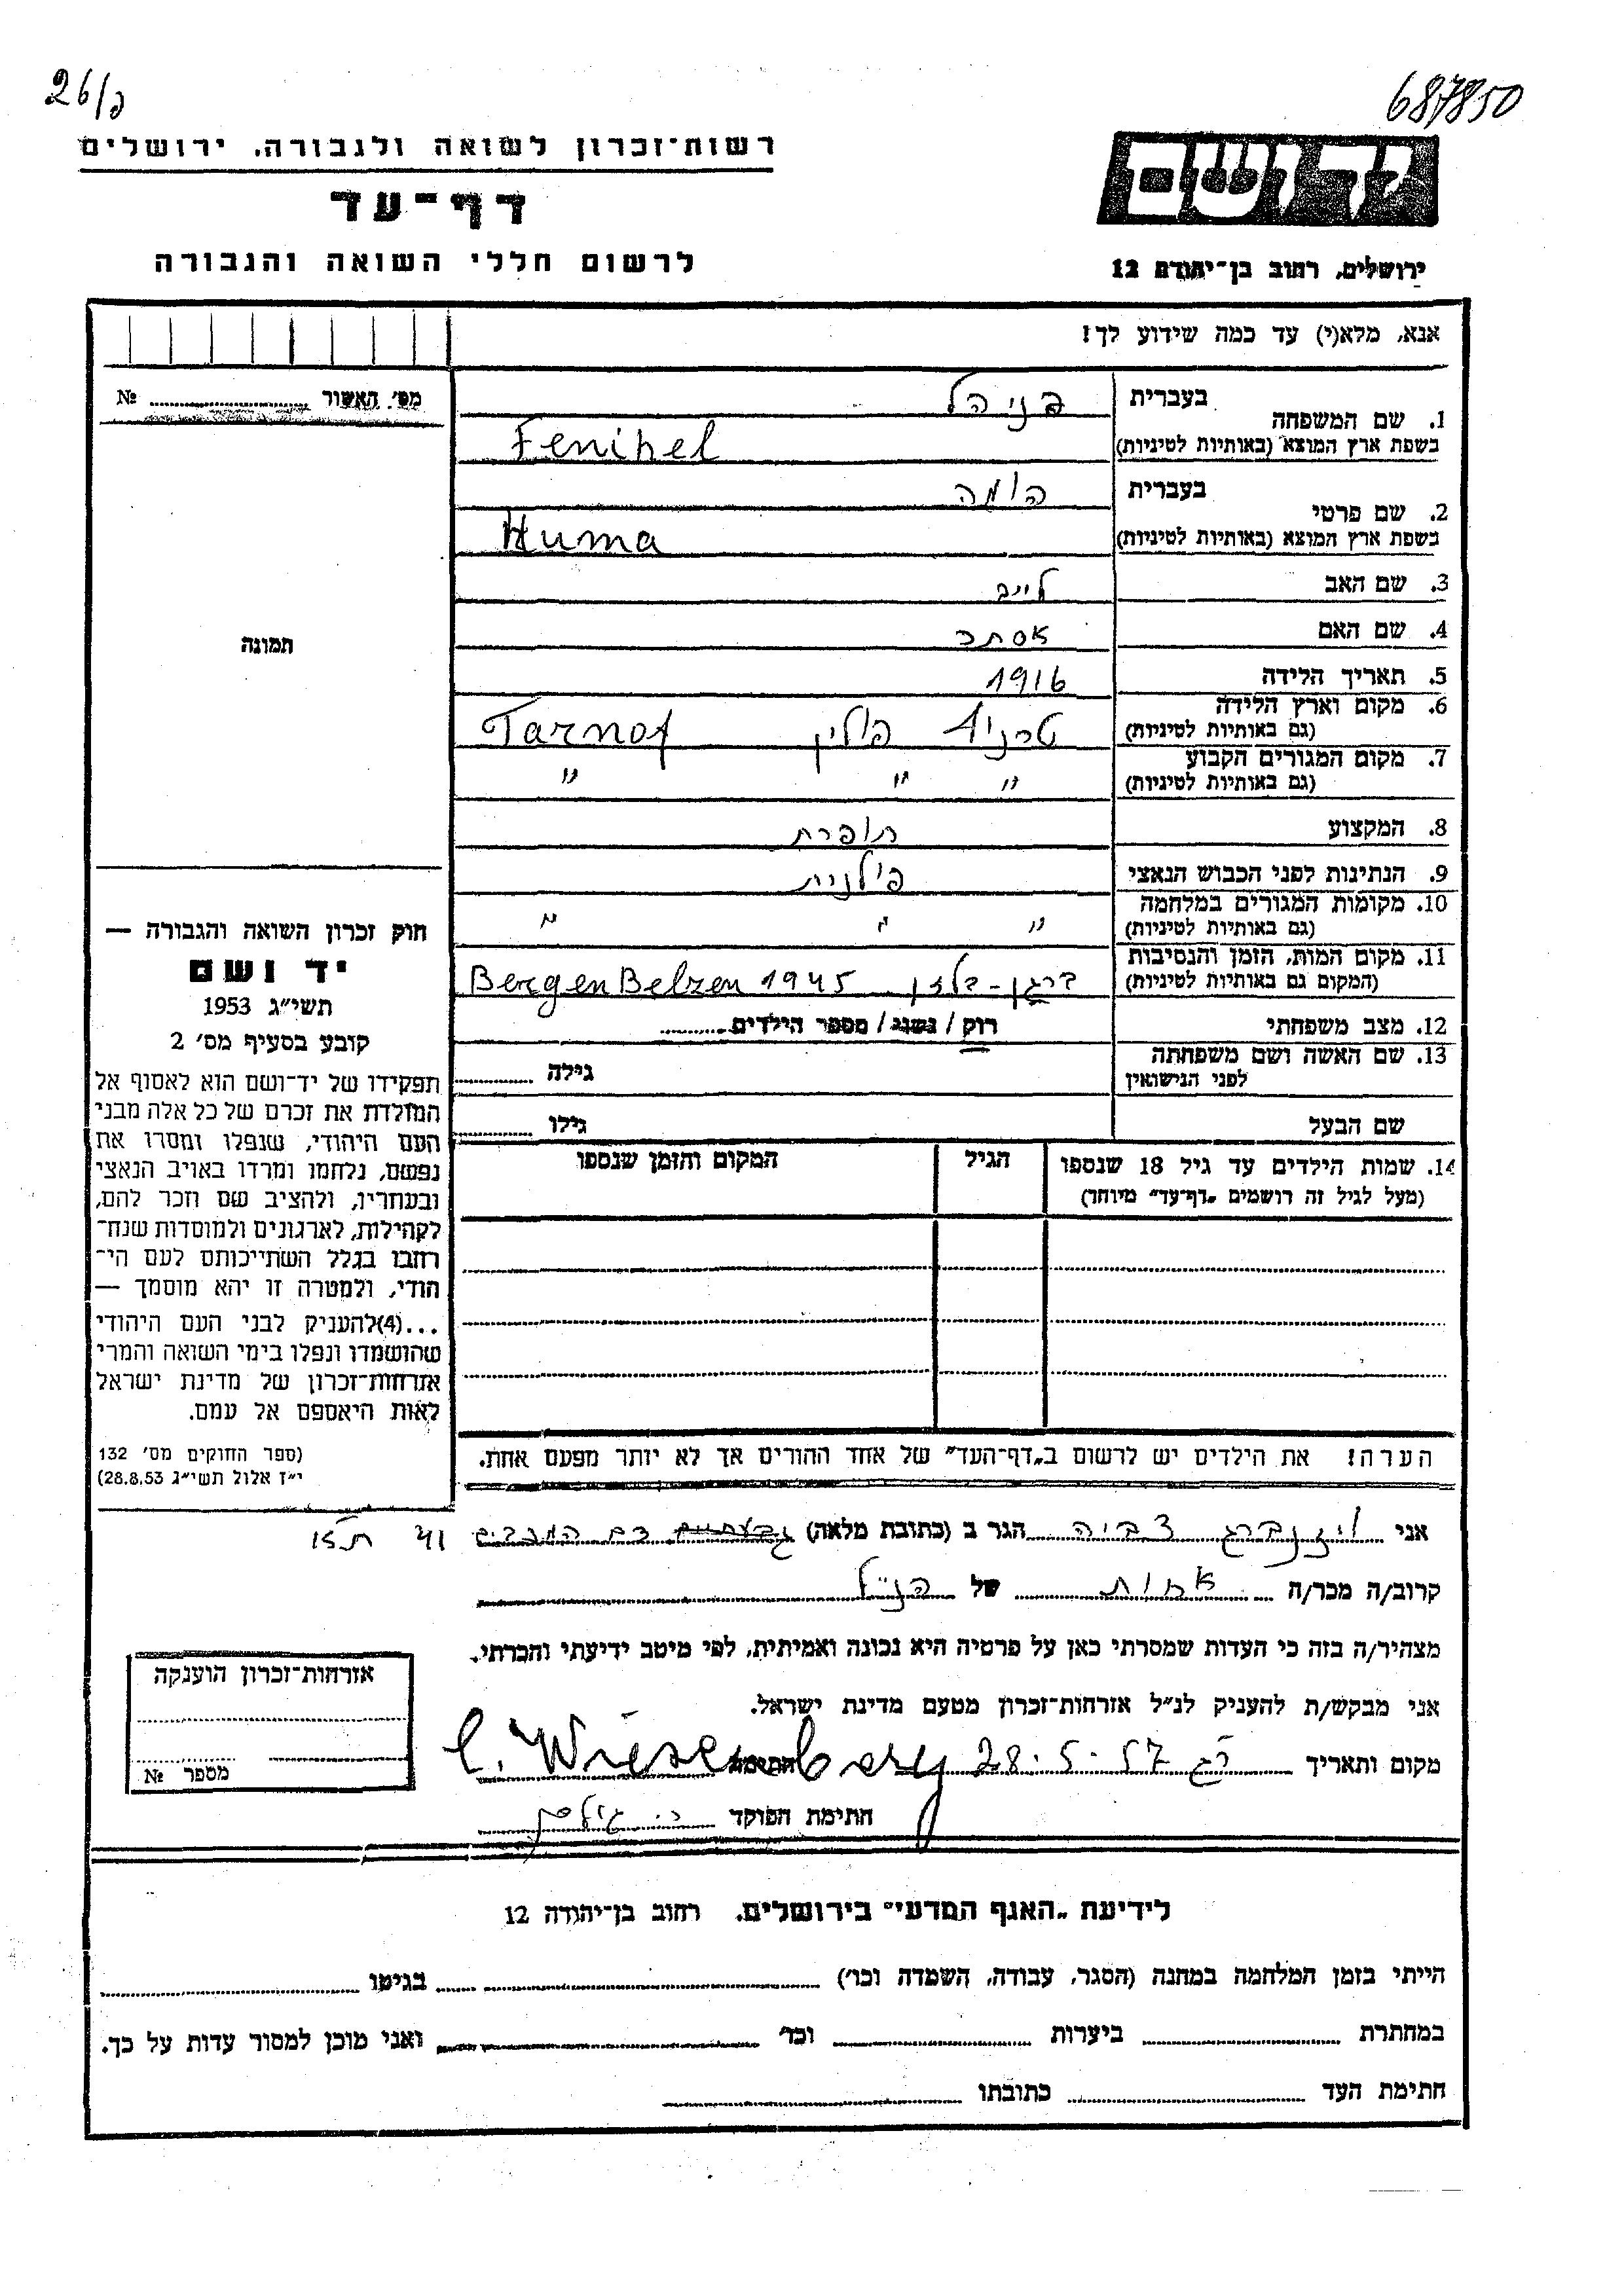 26/נ
687850
רשות־זכרון לשואה ולגבורה. ירושלים
דף־עד
לרשום חללי השואה והגבורה
יד ושם
ירושלים, רחוב בן־יהודה 12
אנא, מלא(י) עד כמה שידוע לך!
מס׳ האשור № ..........
תמונה
1. שם המשפחה בעברית פניהל
בשפת ארץ המוצא (באותיות לטיניות) Fenihel
2. שם פרטי בעברית הומה
בשפת ארץ המוצא (באותיות לטיניות) Huma
3. שם האב לייב
4. שם האם אסתר
5. תאריך הלידה 1916
6. מקום וארץ הלידה (גם באותיות לטיניות) טרנוף פולין Tarnof
7. מקום המגורים הקבוע (גם באותיות לטיניות) " " "
8. המקצוע תופרת
9. הנתינות לפני הכבוש הנאצי פולנית
10. מקומות המגורים במלחמה (גם באותיות לטיניות) " " "
11. מקום המות, הזמן והנסיבות (המקום גם באותיות לטיניות) ברגן-בלזן Bergen Belzen 1945
12. מצב משפחתי רוק / נשוי / מספר הילדים ..........
13. שם האשה ושם משפחתה לפני הנישואין גילה ..........
שם הבעל גילו ..........
14. שמות הילדים עד גיל 18 שנספו הגיל המקום והזמן שנספו
(מעל לגיל זה רושמים „דף־עד״ מיוחד)
חוק זכרון השואה והגבורה —
יד ושם
תשי״ג 1953
קובע בסעיף מס׳ 2
תפקידו של יד־ושם הוא לאסוף אל
המולדת את זכרם של כל אלה מבני
העם היהודי, שנפלו ומסרו את
נפשם, נלחמו ומרדו באויב הנאצי
ובעוזריו, ולהציב שם וזכר להם,
לקהילות, לארגונים ולמוסדות שנח־
רחבו בגלל השתייכותם לעם הי־
הודי, ולמטרה זו יהא מוסמך —
...(4)להעניק לבני העם היהודי
שהושמדו ונפלו בימי השואה והמרי
אזרחות־זכרון של מדינת ישראל
לאות היאספם אל עמם.
(ספר החוקים מס׳ 132
י״ז אלול תשי״ג 28.8.53)
הערה! את הילדים יש לרשום ב„דף־העד״ של אחד ההורים אך לא יותר מפעם אחת.
אני ויזנברג צביה הגר ב (כתובת מלאה) 41
קרוב/ה מכר/ה אחות של הנ״ל
מצהיר/ה בזה כי העדות שמסרתי כאן על פרטיה היא נכונה ואמיתית, לפי מיטב ידיעתי והכרתי.
אני מבקש/ת להעניק לנ״ל אזרחות־זכרון מטעם מדינת ישראל.
מקום ותאריך רג 28.5.57 חתימה C. Wiesenberg
חתימת הפוקד
אזרחות־זכרון הוענקה
מספר №
לידיעת „האגף המדעי״ בירושלים. רחוב בן־יהודה 12
הייתי בזמן המלחמה במחנה (הסגר, עבודה, השמדה וכו׳) .......... בגיטו ..........
במחתרת .......... ביערות .......... וכו׳ .......... ואני מוכן למסור עדות על כך.
חתימת העד .......... כתובתו ..........